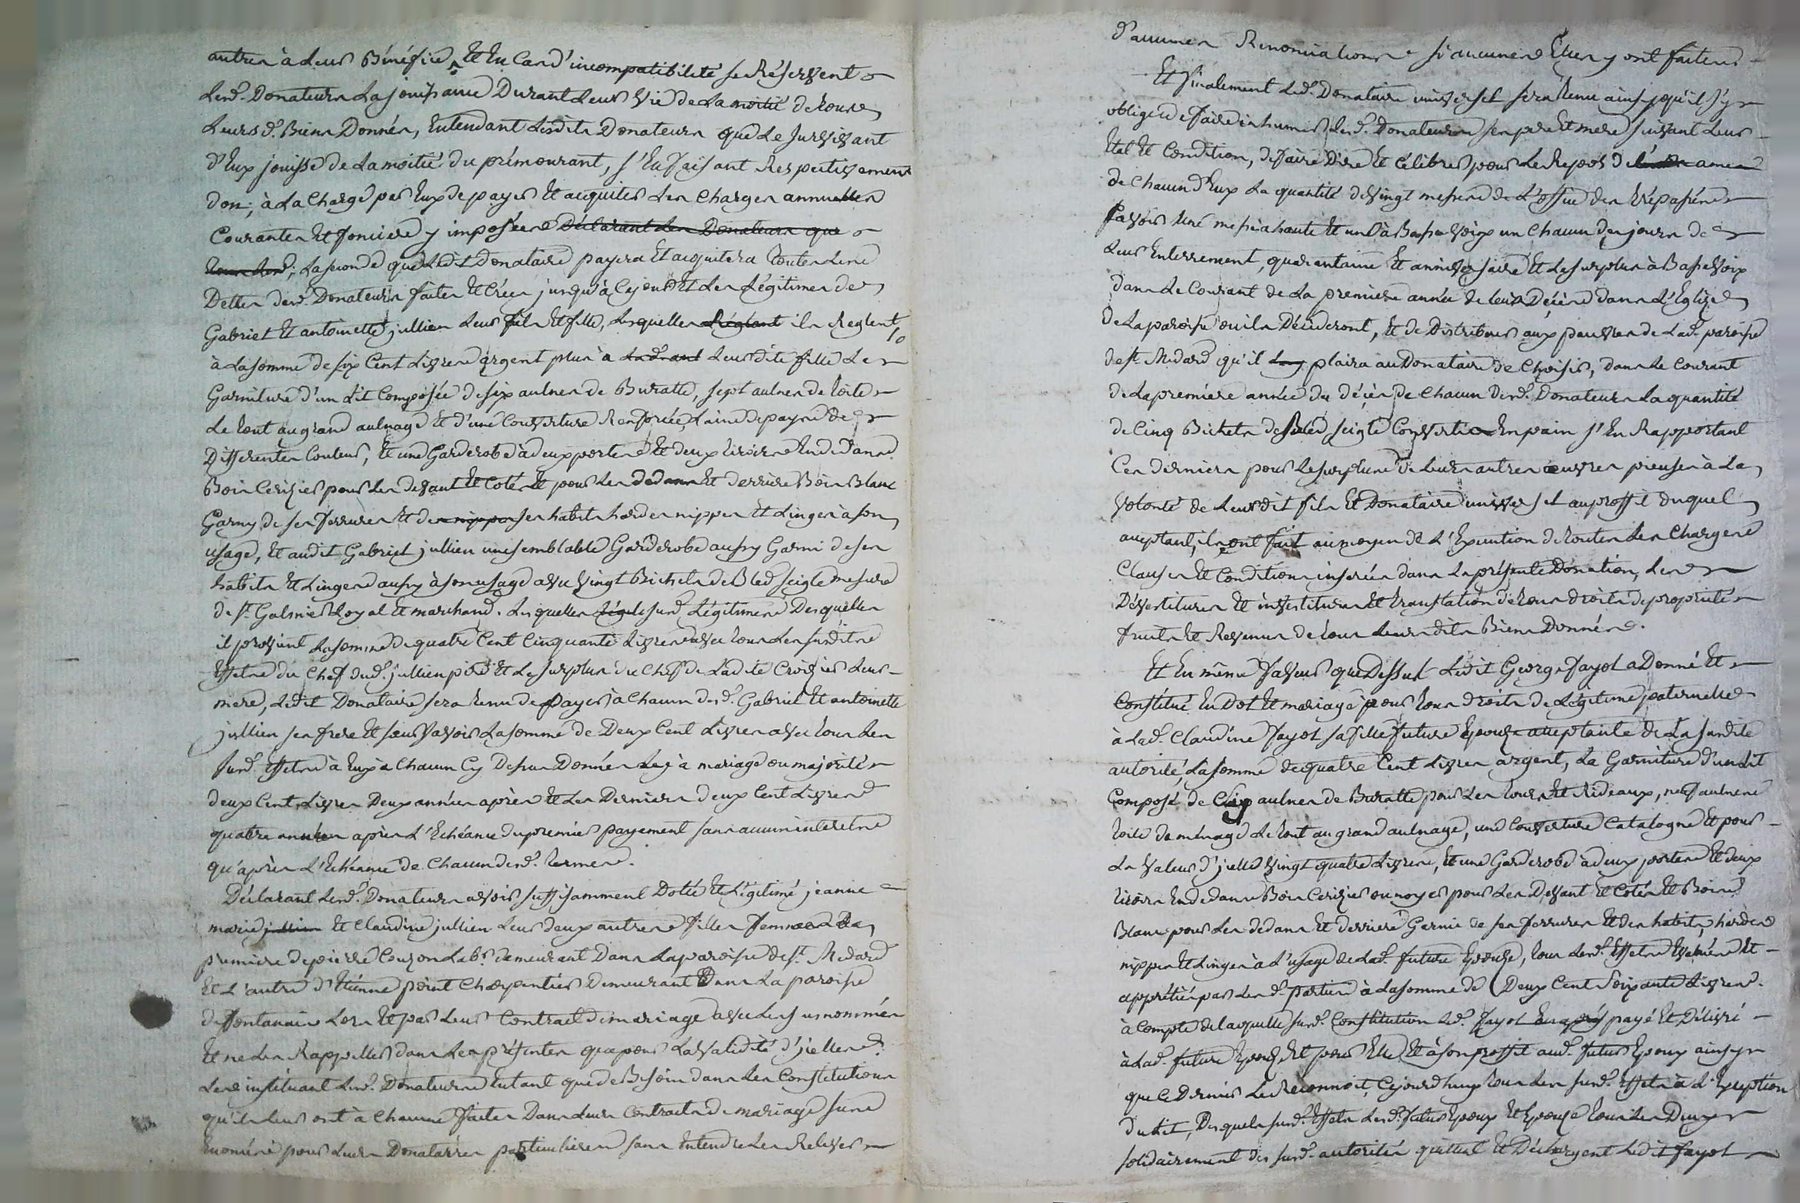 autres à Leur Bénéfice, Et En Cas d'incompatibilité se Réservent
Lesd. Donateurs La jouissance Durant Leur Vie de La moitié de tous
Leursd. Biens Donnés, Entendant Lesdits Donateurs que Le Survivant
d'Eux jouisse de La moitié du prémourant, s'En faisant Respectivement
don, à La Charge par Eux de payer Et acquitter Les Charges annuelles
Courantes Et foncieres y imposées Déclarant Les Donateurs que
La seconde que Ledit Donataire payera Et acquitera toutes Les
Dettes desd. Donateurs faites Et Crées jusqu'à Cejourd. Et Les Légitimes de
Gabriel Et antoinette jullien Leurs fils Et fille, Lesquelles Réglant ils Reglent
à La somme de six Cent Livres argent plus à Leurdite fille Le
Garniture d'un Lit Composée de six aulnes de Buratte, sept aulnes de toile
Le tout au grand aulnage Et d'une Couverture Renforcée Laine de payis de
Differentes Couleurs, Et une Garderobe à deux portes Et deux tiroirs En dedans
Bois Cerisier pour Les devant Et Cotés Et pour Les dedans Et derriere Bois Blanc
Garny de ses ferrures Et de ses nippes ses habits hardes nippes Et Linges à son
usage, Et audit Gabriel jullien une semblable Garderobe aussy Garni de ses
habits Et Linges aussy à son usage avec vingt Bichets de Bled seigle mesure
de St. Galmier Loyal Et marchand. Lesquelles susd. Légitimes Desquelles
il provient La somme de quatre Cent Cinquante Livres avec tous Les susdits
Effets du Chef dud. jullien pere Et Le surplus du Chef de Ladite Crozier Leur
mere, Ledit Donataire sera tenu de payer à Chacun desd. Gabriel Et antoinette
jullien ses frere Et sœur savoir La somme de Deux Cent Livres avec tous Les
susd. Effets à Eux à Chacun Cy Dessus Donnés Leg à mariage ou majorité
deux Cent Livres Deux années après Et Les Derniers deux Cent Livres
quatre années après L'Echéance du premier payement sans aucuns interets
qu'après L'Echéance de Chacun desd. termes.
Déclarant Lesd. Donateurs avoir suffisamment Dotté Et Légitimé jeanne
marie jullien Et Claudine jullien Leurs deux autres filles femmes La
premiere de pierre Couzon Labr. demeurant Dans La paroisse de St. Medard
Et L'autre d'Etienne point Charpentier Demeurant Dans La paroisse
de fontanais Lors Et par Leur Contrait de mariage avec Les susnommés
Et ne Les Rappeller dans Les présentes que pour La validité d'jcelles
Les instituant Lesd. Donateurs En tant que de Besoin dans Les Constitutions
qu'ils Leur ont à Chacune faites Dans Leurs Contracts de mariage sans
pour Leurs Donataires particulieres sans Entendre Les Relever
d'aucunes Renonciations si aucunes Elles y ont faites
Et finalement Led. Donataire universel sera tenu ainsy qu'il s'y
oblige de faire inhumer Lesd. Donateurs ses pere Et mere suivant Leur
Etat Et Condition, de faire Dire Et Célébrer pour Le Repos de L'ame
de Chacun d'Eux La quantité de vingt messes de L'office des trépassés
savoir une messe à haute Et une à Basse voix un Chacun des jours de
Leur Enterrement, quarantaine Et anniversaire Et Le surplus à Basse voix
dans Le Courant de La premiere année de Leur Décès dans L'Eglise
de La paroisse ou ils Décéderont, Et de Distribuer aux pauvres de Lad. paroisse
de St. Medard qu'il plaira au Donataire de Choisir, dans Le Courant
de La première année du décès de Chacun desd. Donateurs La quantité
de Cinq Bichets de Bled seigle Converti En pain s'En Rapportant
Ces derniers pour Le surplus de Leurs autres œuvres pieuses à La
volonté de Leurdit fils Et Donataire universel au proffit duquel
acceptant, ils ont fait au moyen de L'Execution de toutes Les Charges
Clauses Et Conditions insérées dans La présente Donation, Les
Dévestitures Et investitures Et translation de tous droits de propriété
fruits Et Revenus de tous Leursdits Biens Donnés.
Et En même faveur que Dessus Ledit George fayol a Donné Et
Constitué En Dot Et mariage pour tous droits de Légitime paternelle
à Lad. Claudine fayol sa fille future Epouse acceptante de La susdite
autorité, La somme de quatre Cent Livres argent, La Garniture d'un Lit
Composé de Six aulnes de Buratte pour Les tours Et Rideaux, neuf aulnes
toile de ménage Le tout au grand aulnage, une Couverture Catalogne Et pour
La valeur d'jcelle vingt quatre Livres, Et une Garderobe à deux portes Et deux
tiroirs En dedans Bois Cerisier ou noyer pour Les Devant Et Cotés Et Bois
Blanc pour Les dedans Et derriere Garnie de ses ferrures Et des habits, hardes
nippes Et Linges à L'usage de Lad. future Epouse, tous Lesd. Effets Evalués Et
appretiés par Les d. parties à La somme de Deux Cent Soixante Livres.
à Compte de Laquelle susd. Constitution Led. fayol payé Et Délivré
à Lad. future Epouse Et pour Elle Et à son proffit aud. futur Epoux ainsy
que Ce Dernier Le Reconnoit, Cejourd'huy tous Les susd. Effets à L'Exception
du Lit, Desquels susd. Effets Lesd. futurs Epoux Et Epouse tous Les Deux
solidairement des susd. autorités quittent Et Déchargent Ledit fayol